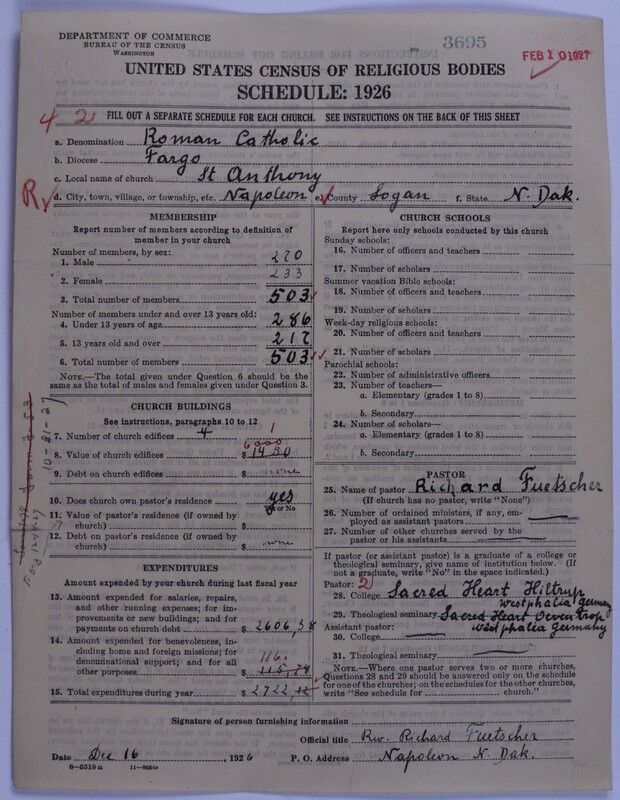 DEPARTMENT OF COMMERCE
BUREAU OF THE CENSUS
WASHINGTON
3695
FEB 10 1927
UNITED STATES CENSUS OF RELIGIOUS BODIES
SCHEDULE: 1926
4 2 FILL OUT A SEPARATE SCHEDULE FOR EACH CHURCH. SEE INSTRUCTIONS ON THE BACK OF THIS SHEET
a. Denomination Roman Catholic
b. Diocese Fargo
c. Local name of church St Anthony
R d. City, town, village, or township, etc. Napoleon e. County Logan f. State N. Dak.
MEMBERSHIP
Report number of members according to definition of
member in your church
Number of members, by sex:
1. Male 270
2. Female 233
3. Total number of members 503
Number of members under and over 13 years old:
4. Under 13 years of age 286
5. 13 years old and over 217
6. Total number of members 503
NOTE.—The total given under Question 6 should be
same as the total of males and females given under Question 3.
CHURCH BUILDINGS
See instructions, paragraphs 10 to 12
7. Number of church edifices 4 1
6000
8. Value of church edifices $ 1450
9. Debt on church edifices $ none
10. Does church own pastor's residence yes
Yes or No
11. Value of pastor's residence (if owned by
church) $
12. Debt on pastor's residence (if owned by
church) $ none
10-21-27
EXPENDITURES
Amount expended by your church during last fiscal year
13. Amount expended for salaries, repairs,
and other running expenses; for im-
provements or new buildings; and for
payments on church debt $ 2606,38
14. Amount expended for benevolences, in-
cluding home and foreign missions; for
denominational support; and for all
116.
other purposes $ 115,74
15. Total expenditures during year $ 2722,12
CHURCH SCHOOLS
Report here only schools conducted by this church
Sunday schools:
16. Number of officers and teachers
17. Number of scholars
Summer vacation Bible schools:
18. Number of officers and teachers
19. Number of scholars
Week-day religious schools:
20. Number of officers and teachers
21. Number of scholars
Parochial schools:
22. Number of administrative officers
23. Number of teachers—
a. Elementary (grades 1 to 8)
b. Secondary
24. Number of scholars—
a. Elementary (grades 1 to 8)
b. Secondary
PASTOR
25. Name of pastor Richard Fuetscher
(If church has no pastor, write "None")
26. Number of ordained ministers, if any, em-
ployed as assistant pastors
27. Number of other churches served by the
pastor or his assistants
If pastor (or assistant pastor) is a graduate of a college or
theological seminary, give name of institution below. (If
not a graduate, write "No" in the space indicated.)
Pastor: 2
28. College Sacred Heart Hiltrup
Westphalia Germany
29. Theological seminary Sacred Heart Oeventrop
Assistant pastor: Westphalia Germany
30. College
31. Theological seminary
NOTE.—Where one pastor serves two or more churches,
Questions 28 and 29 should be answered only on the schedule
for one of the churches; on the schedules for the other churches,
write "See schedule for church."
Signature of person furnishing information
Official title Rev. Richard Fuetscher
Date Dec 16, 1926 P. O. Address Napoleon N. Dak.
8—5519a 11—9024